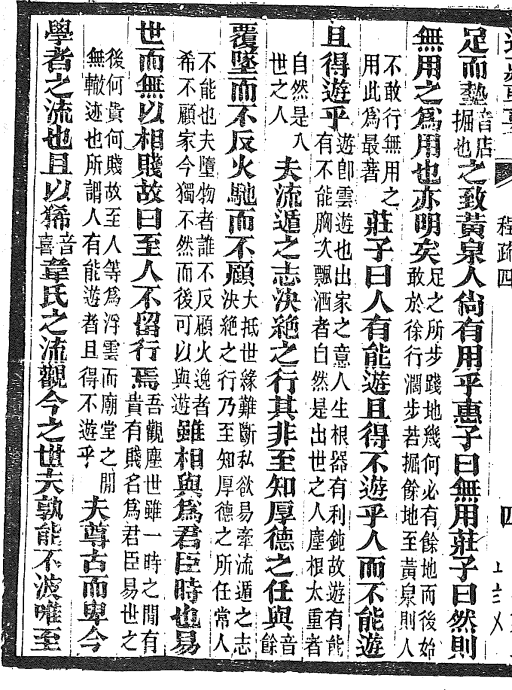 程疏四
足而墊音店掘也之致黃泉人尚有用乎惠子曰無用莊子曰然則
無用之為用也亦明矣足之所步踐地幾何必有餘地而後始敢於徐行濶步若掘餘地至黃泉則人
不敢行無用之用此為最著莊子曰人有能遊且得不遊乎人而不能遊
且得遊乎遊卽雲遊也出家之意人生根器有利鈍故遊有能有不能胸次飄洒者自然是出世之人塵根太重者
自然是入世之人夫流遁之志決絕之行其非至知厚德之任與音餘
覆墜而不反火馳而不顧大抵世緣難斷私欲易牽流遁之志決絕之行乃至知厚德之所任常人
不能也夫墮物者誰不反顧火逸者希不顧家今獨不然而後可以與遊雖相與為君臣時也易
世而無以相賤故曰至人不留行焉吾觀塵世雖一時之間有貴有賤名為君臣易世之
後何貴何賤故至人等為浮雲而廟堂之間無轍迹也所謂人有能遊者且得不遊乎夫尊古而卑今
學者之流也且以狶音喜韋氏之流觀今之世夫孰能不波唯至